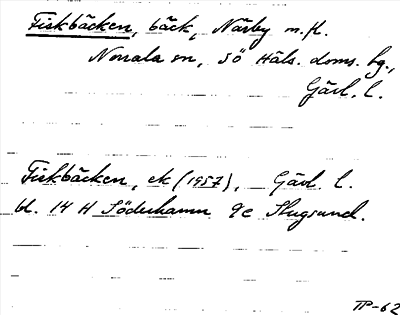 Fiskbäcken, bäck, Närby m.fl.
Norrala sn, Sö Häls. doms. fg.,
Gävl. l.
Fiskbäcken, ek (1957), Gävl l.
bl. 14 H Söderhamn 9c Slugsund.
TP-62